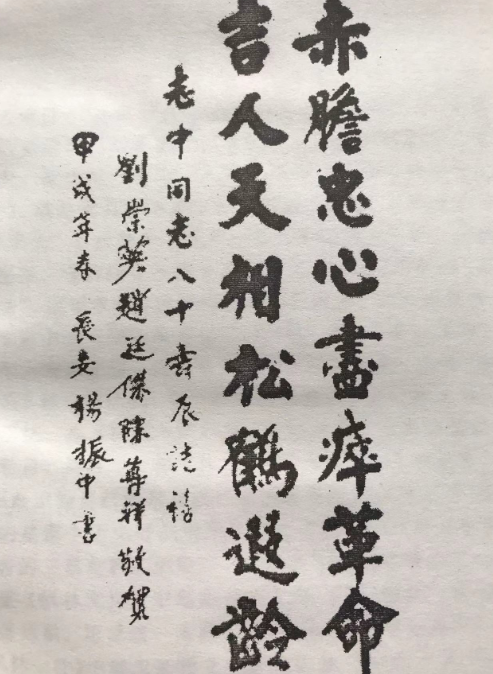 赤膽忠心盡瘁革命
吉人天相松鶴遐齡
老中同志八十壽辰誌禧
劉榮 趙廷傑陳尊祥敬賀
甲戌年春 長安楊振中書